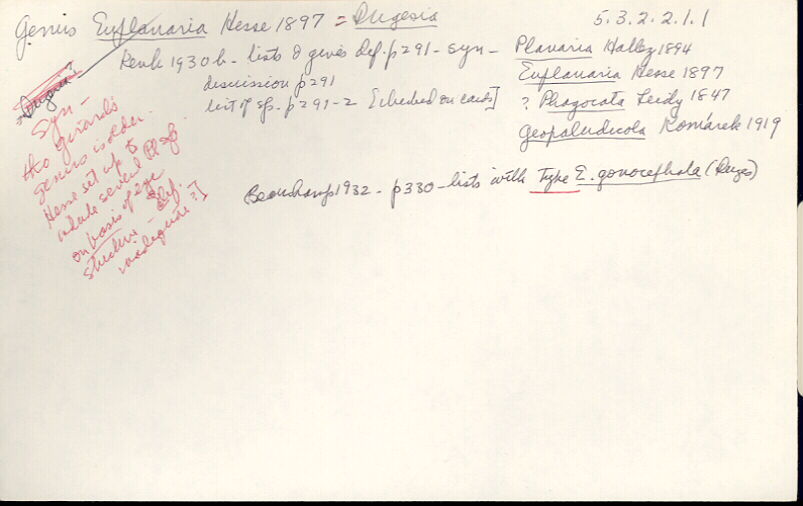 Genus Euplanaria Hesse 1897 = Dugesia
5.3.2.2.1.1
Kenk 1930b - lists & gives def. p291 - syn - Planaria Hallez 1894
Euplanaria Hesse 1897
? Phagocata Leidy 1847
Geopaludicola Komárek 1919
discussion p291
list of sp. p291-2 [checked on cards]
= Dugesia?
Syn -
tho Girard's
genus is older.
Hesse set up to
include several Pl. sp.
on basis of eye
studies - def.
inadequate?]
Beauchamp 1932 - p330 - lists with Type E. gonocephala (Dugès)